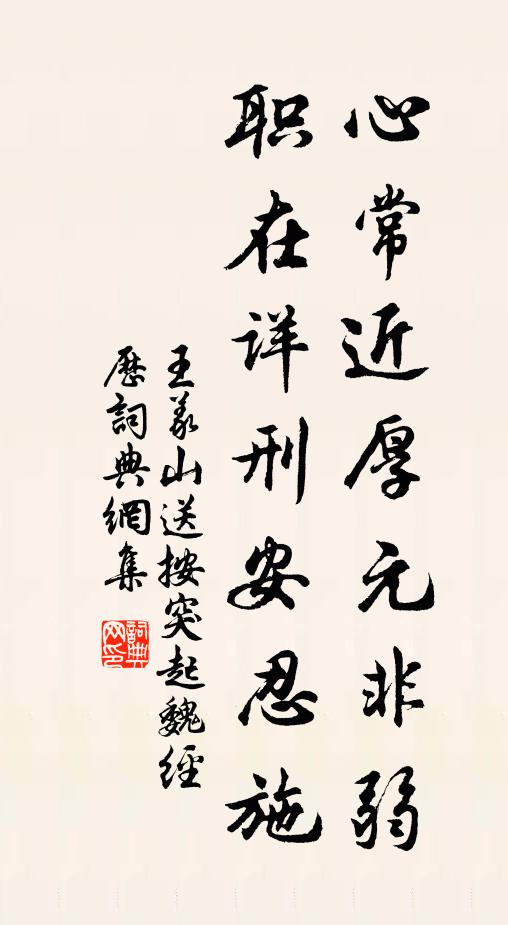 心常近厚元非弱
职在详刑安忍施
王义山送按突起魏经
历詞典網集
詞典网印